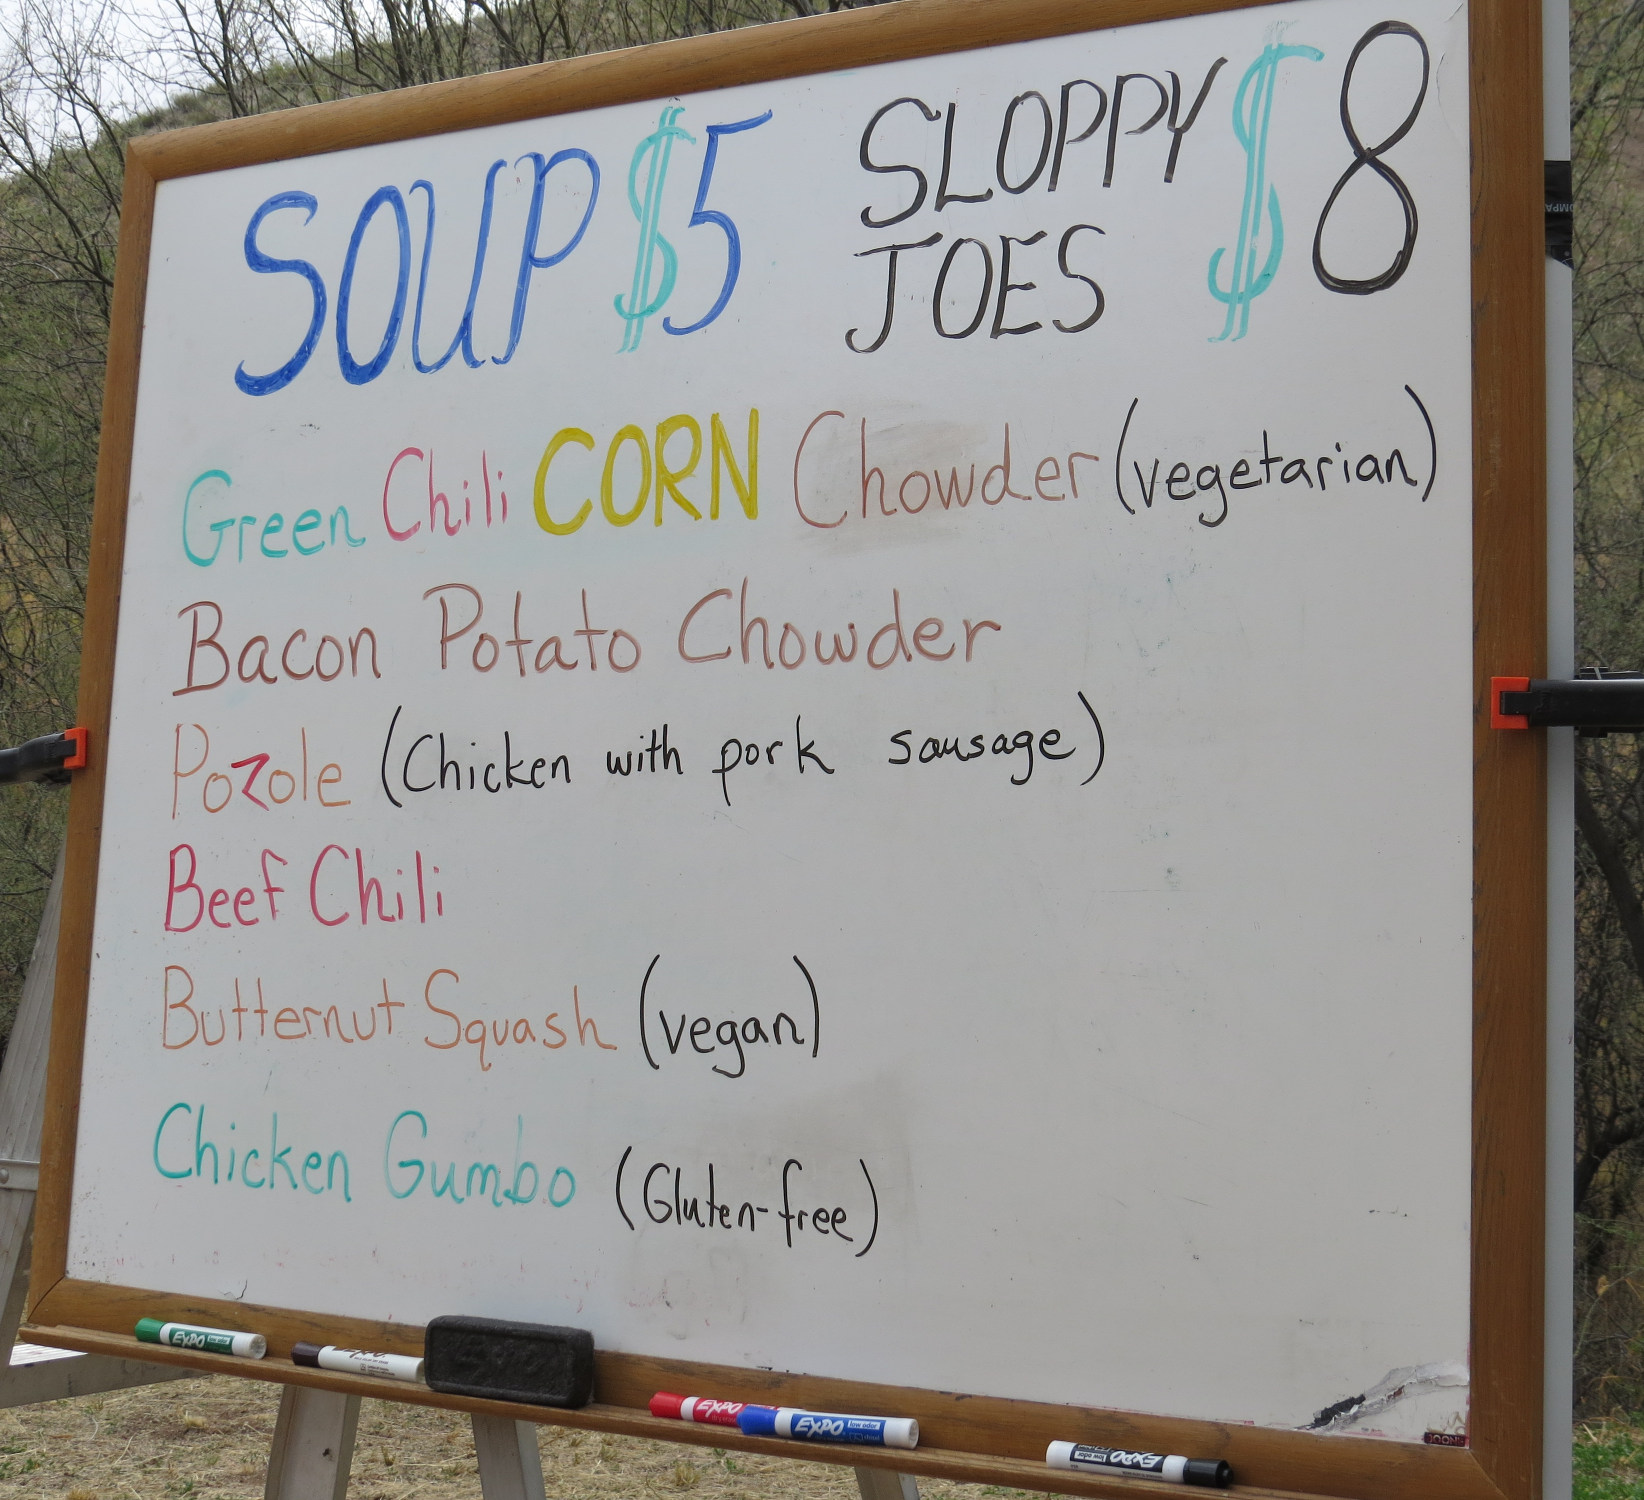 SOUP $5 SLOPPY JOES $8
Green Chili CORN Chowder (vegetarian)
Bacon Potato Chowder
Pozole (Chicken with pork sausage)
Beef Chili
Butternut Squash (vegan)
Chicken Gumbo (Gluten-free)
EXPO low odor
EXPO
EXPO
EXPO
EXPO low odor
EXPO low odor